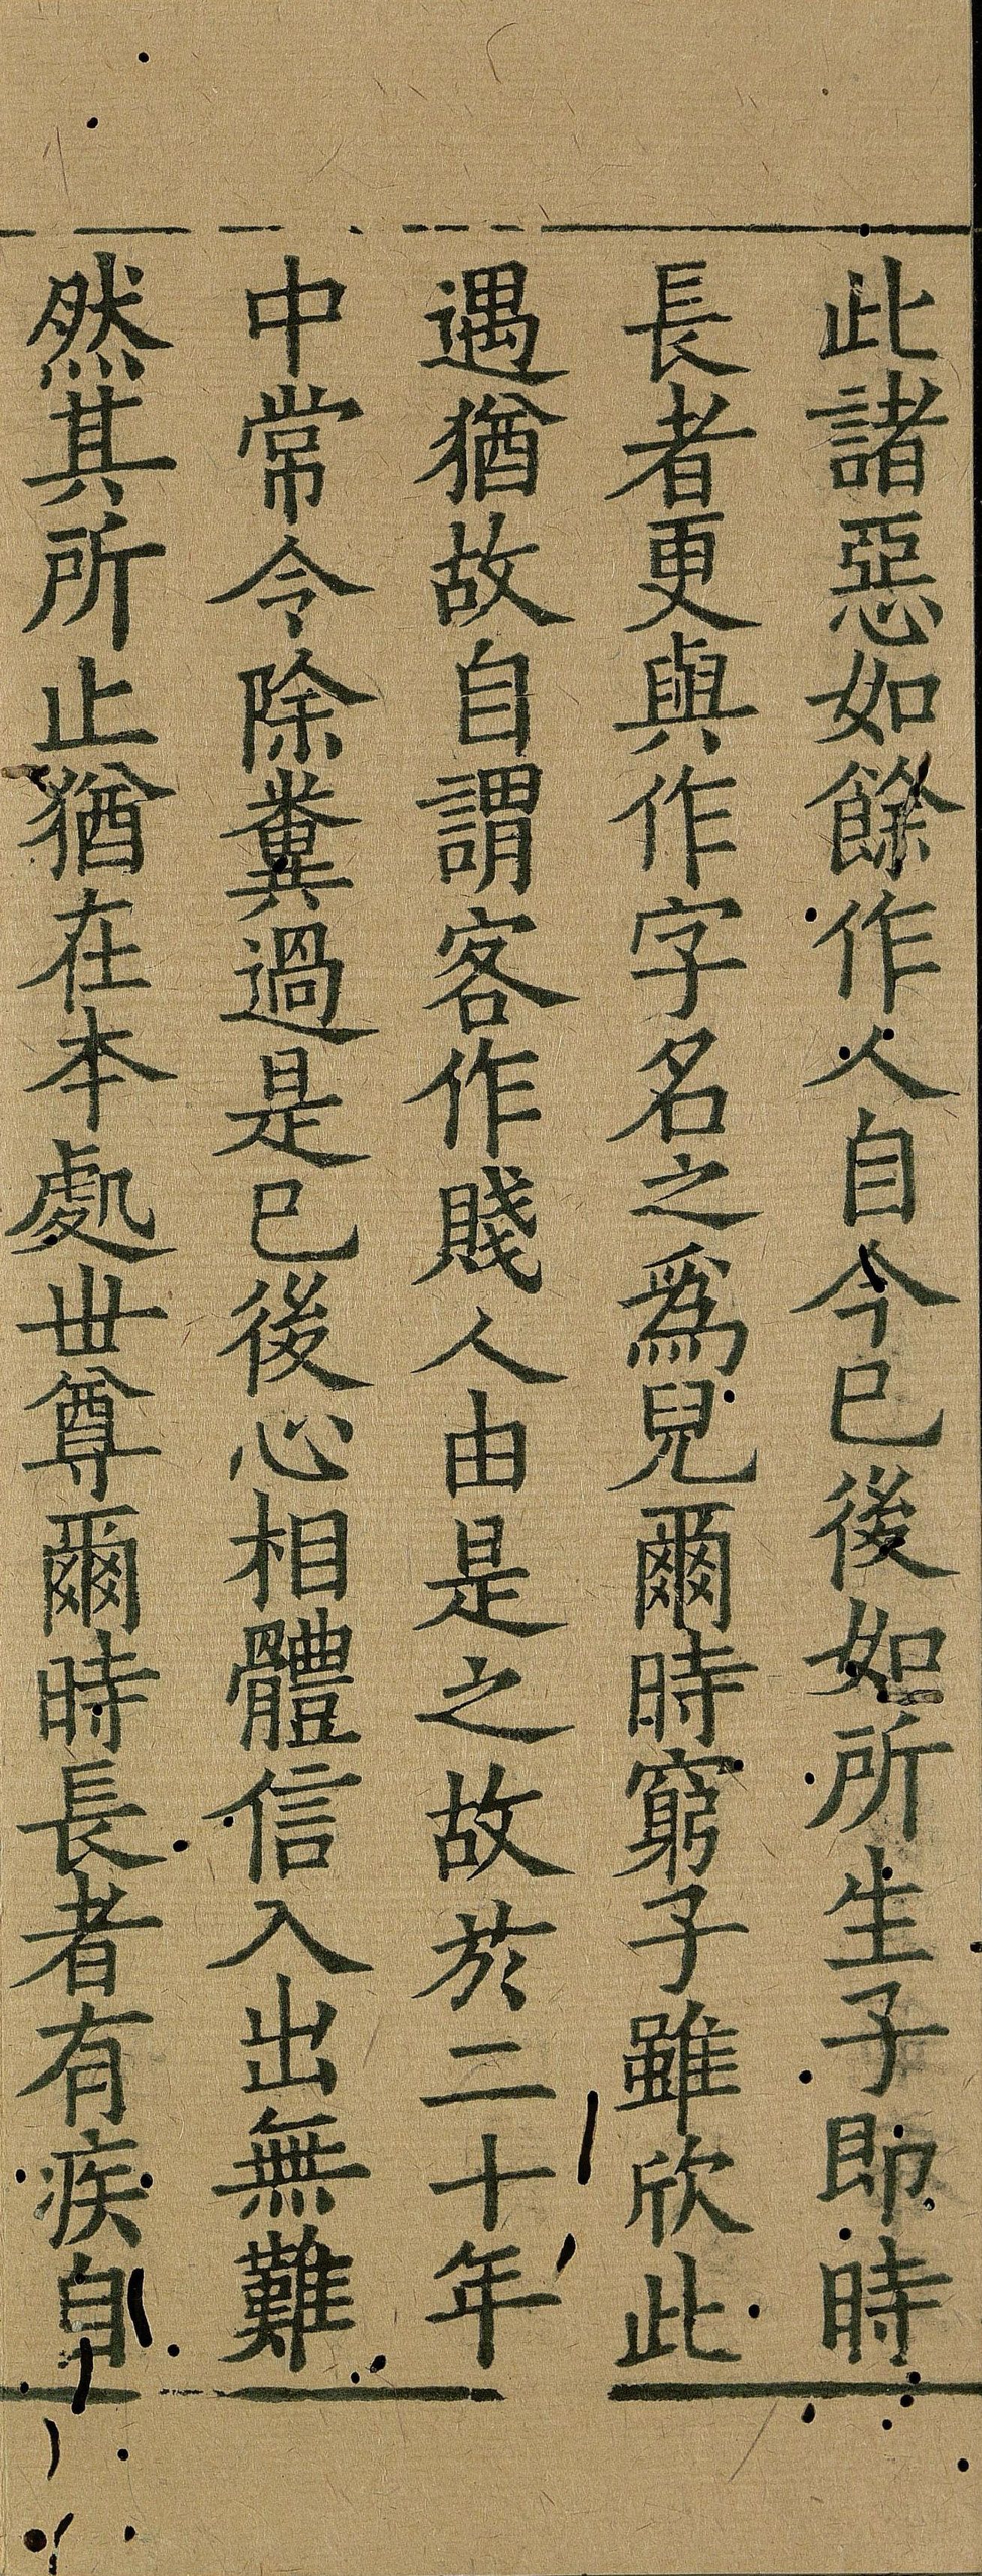 此諸惡如餘作人自今已後如所生子即時
長者更與作字名之爲兒爾時窮子雖欣此
遇猶故自謂客作賤人由是之故於二十年
中常令除糞過是已後心相體信入出無難
然其所止猶在本處世尊爾時長者有疾自